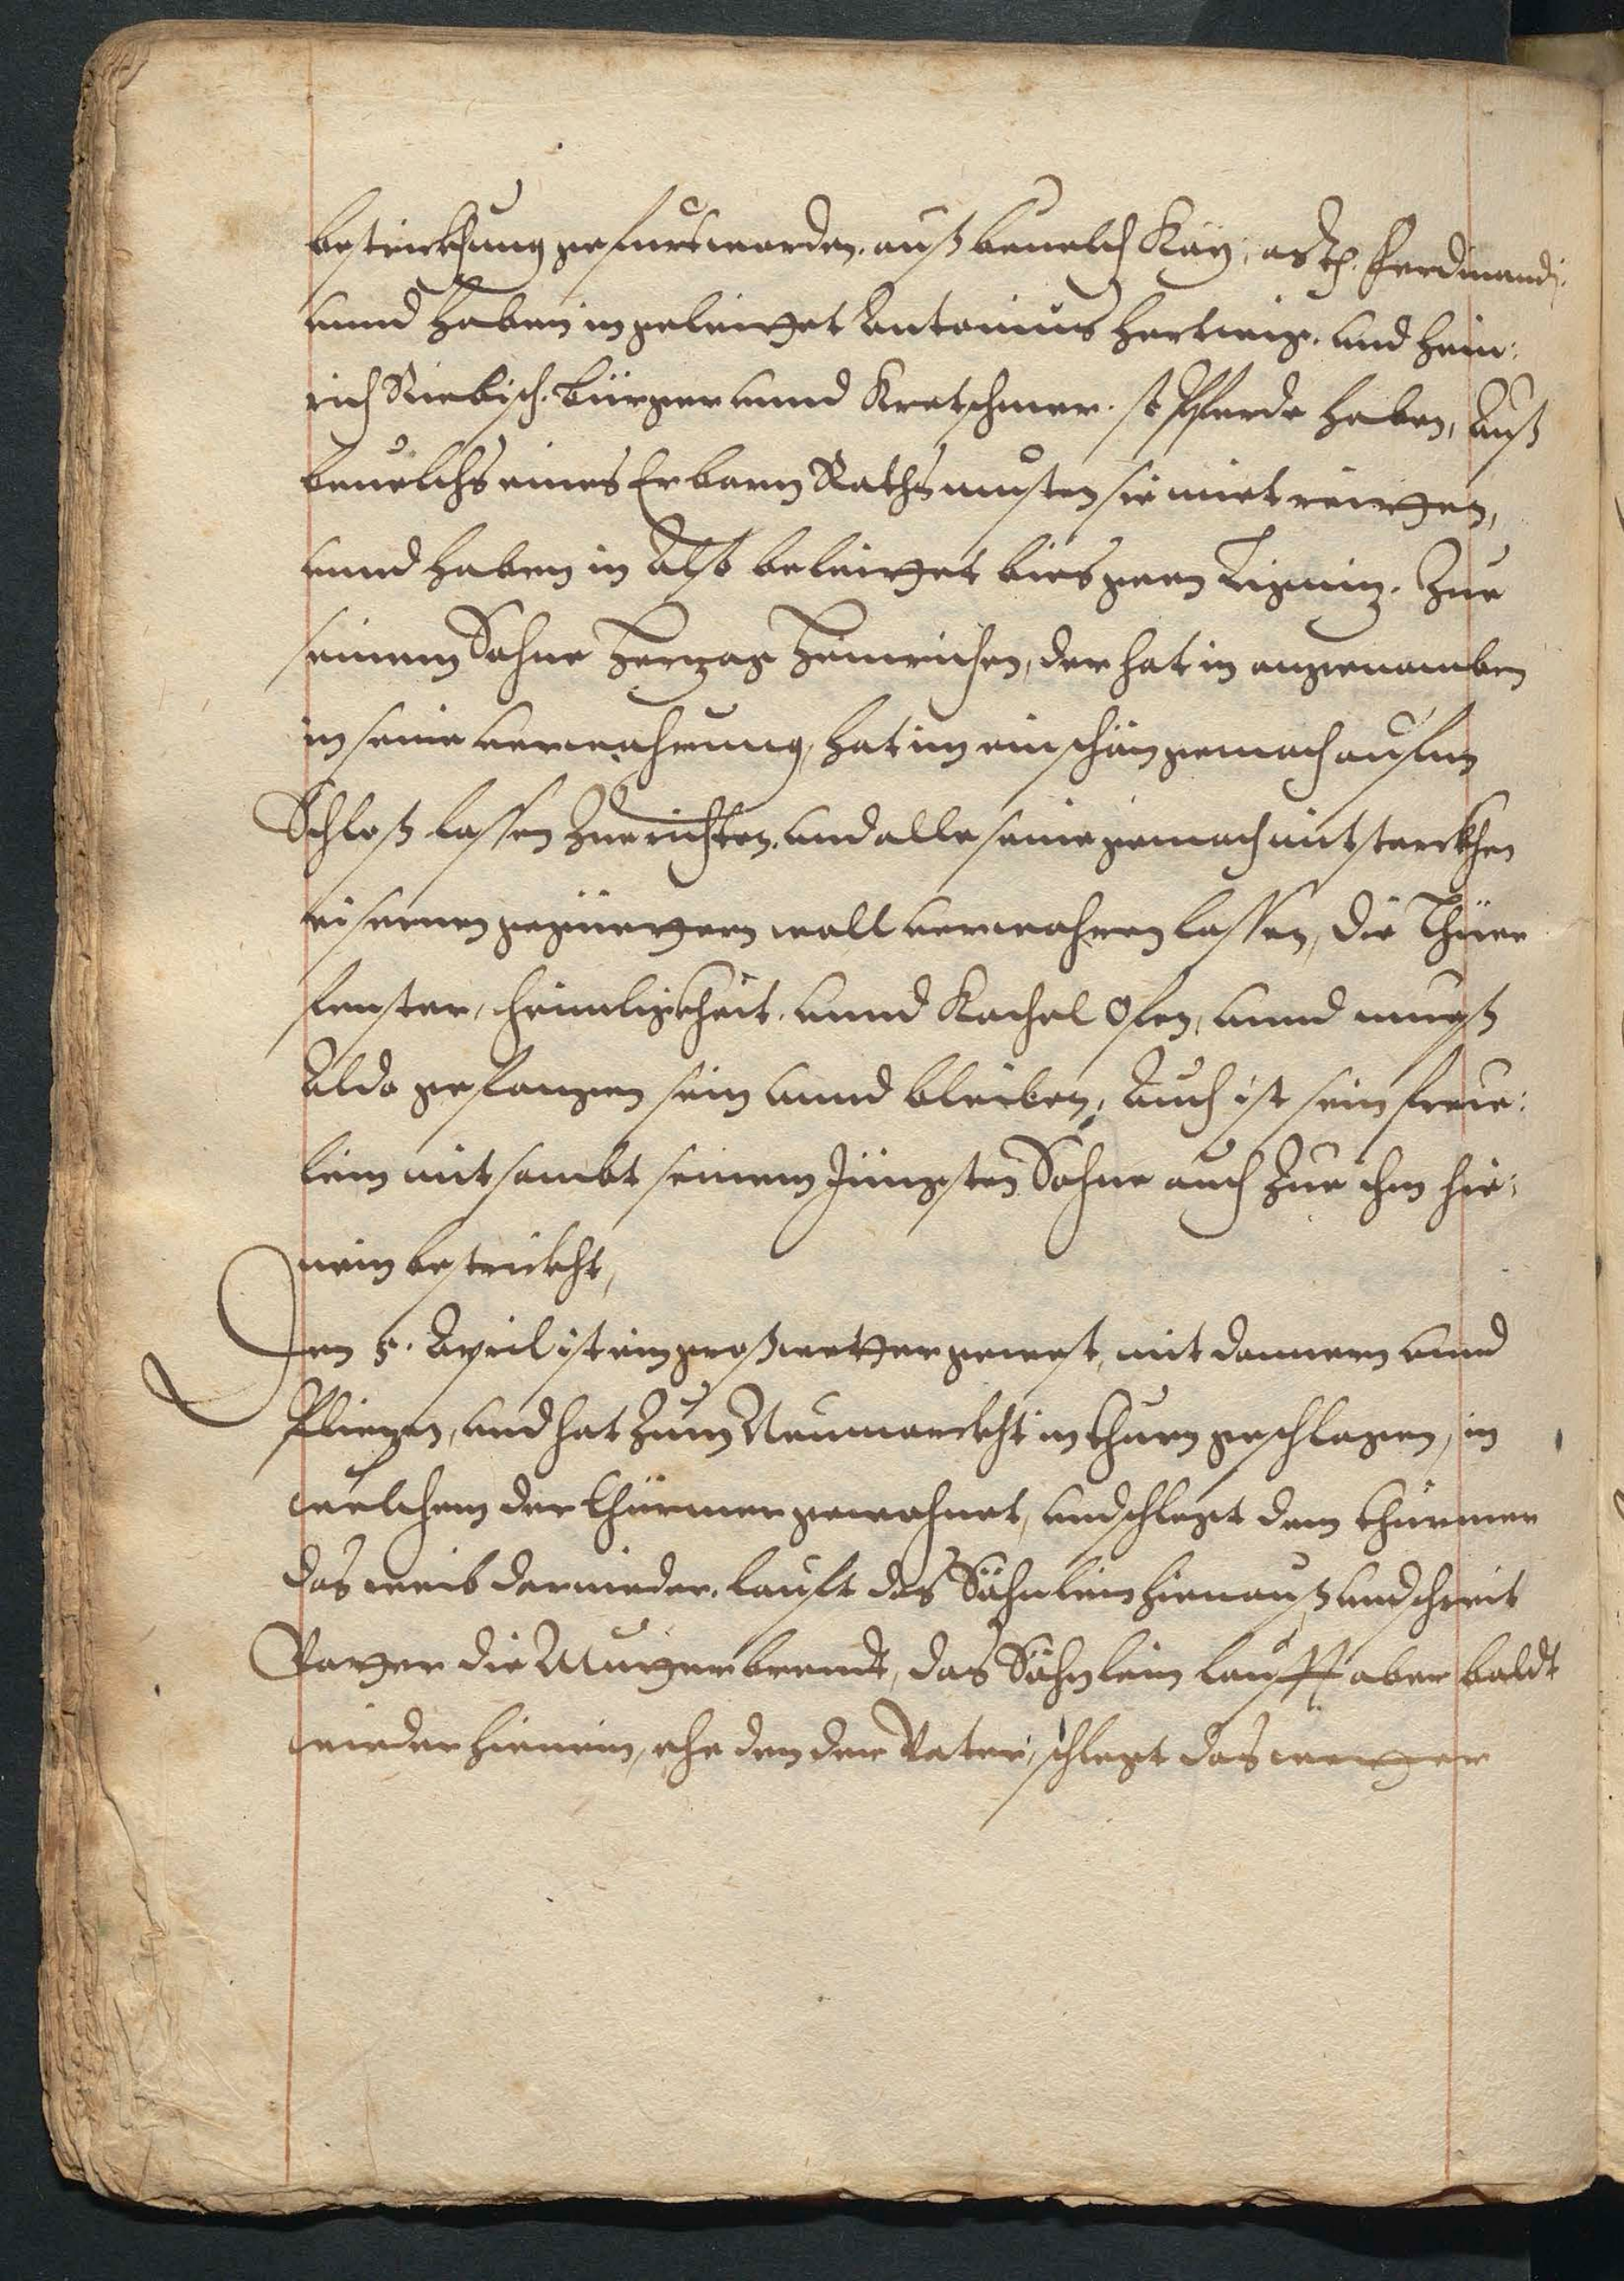 bestrickhung gefurt worden. auß beuelch Kay: Ferdinandi.
vnnd haben in geleittet Antonius Hertwig. vnd Hein:
rich Riebisch. Bürger vnnd Kretschmer. so Pferde haben, Auß
beuelchs eines Erbarn Raths musten sie mit reitten,
vnnd haben in Also beleittet bies gen Lignitz. Zue
seinem Sohne Hertzog Heinrichen, der hat in angenomben
in seine verwahrung, hat im ein schön gemach aufm
Schloß lassen Zuerichten. vnd alle seine gemach mit starckhen
eisernen gegüettern woll verwahren lassen, die Thüre
fenster, heimligkheit. vnnd Kachel Ofen, vnnd mueß
Alda gefangen sein vnnd bleiben, Auch ist sein freue:
lein mit sambt seinem Jüngsten Sohne auch Zue ihm hie:
nein bestrickht,
Den 5. April ist ein groß wetter gewest, mit donnern vnnd
Pliezen, vnd hat Zum Neumarckht in thurn geschlagen, in
welchem der thürmer gewohnet, vnd schlegt dem thürmer
das weib dernieder. lauft das Söhnlein hienauß vnd schreit
Vatter die Mutter brendt, das Söhnlein laufft aber baldt
wieder hienein, ehe den der Vater, schlegt das wetter